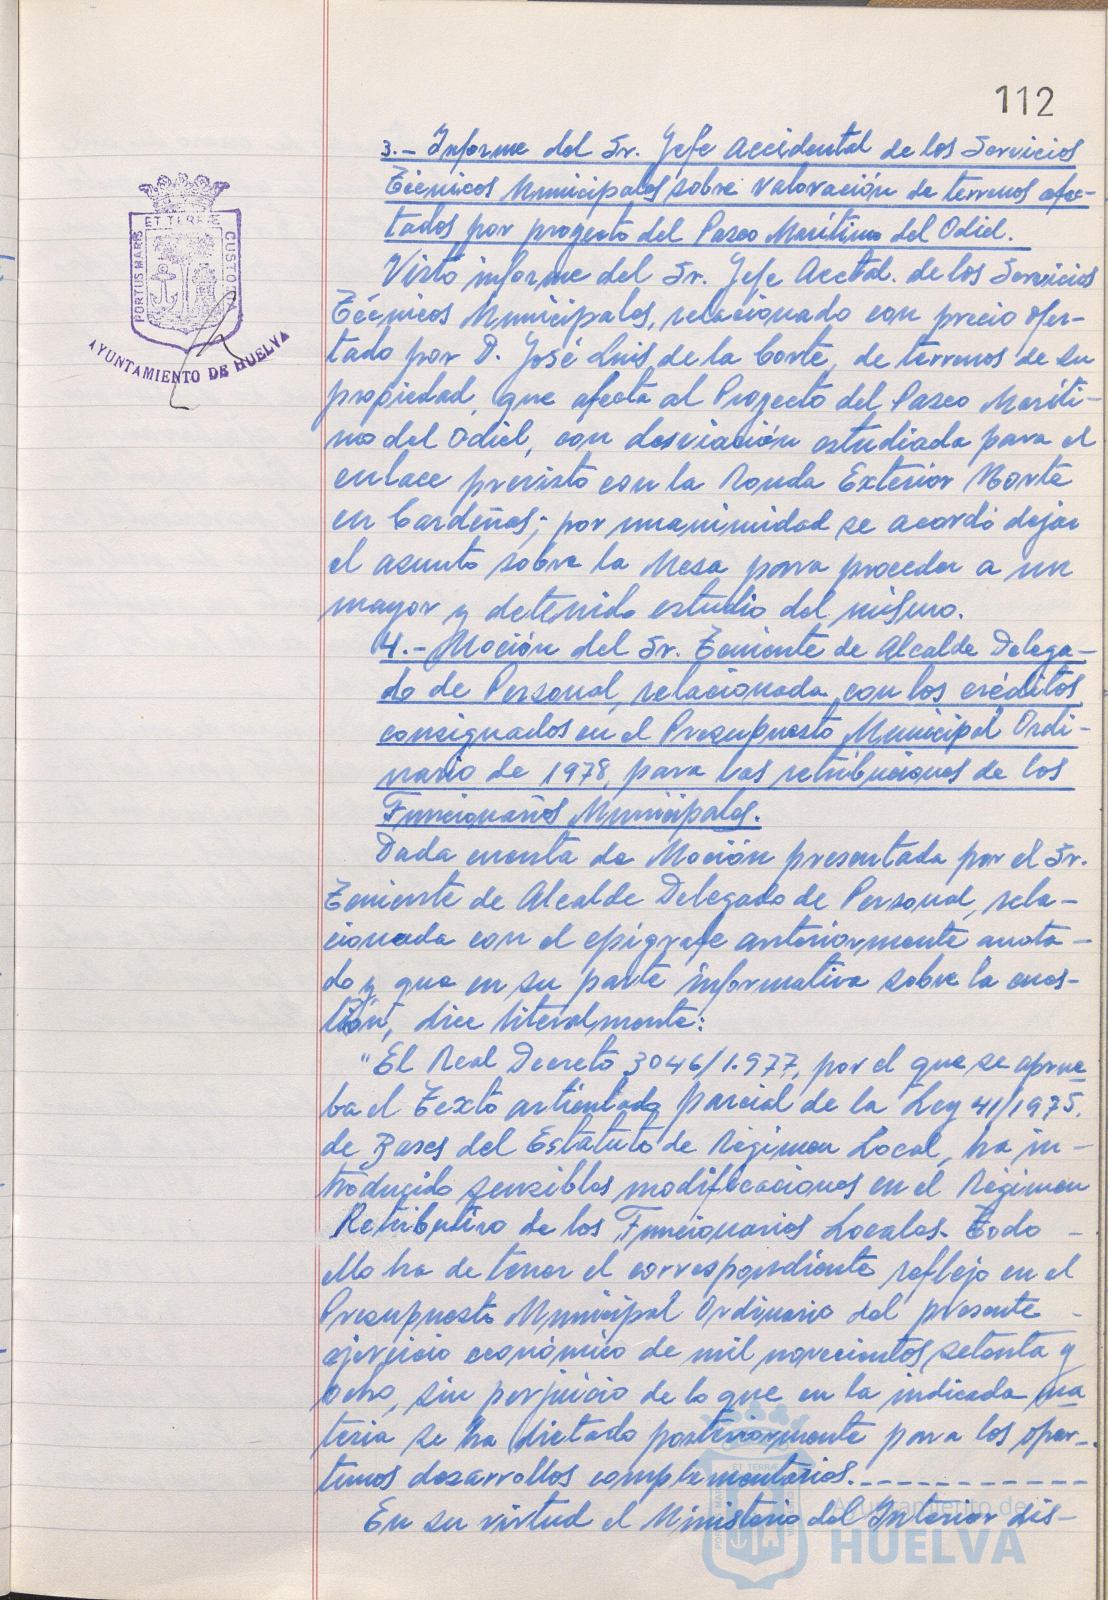 112
3.- Informe del Sr. Jefe Accidental de los Servicios
Técnicos Municipales sobre valoración de terrenos afec-
tados por proyecto del Paseo Marítimo del Odiel.
Visto informe del Sr. Jefe Acctal. de los Servicios
Técnicos Municipales, relacionado con precio ofer-
tado por D. José Luis de la Corte, de terrenos de su
propiedad, que afecta al Proyecto del Paseo Maríti-
mo del Odiel, con desviación estudiada para el
enlace previsto con la Ronda Exterior Norte
en Cardeñas; por unanimidad se acordó dejar
el asunto sobre la Mesa para proceder a un
mayor y detenido estudio del mismo.
4.- Moción del Sr. Teniente de Alcalde Delega-
do de Personal, relacionada con los créditos
consignados en el Presupuesto Municipal Ordi-
nario de 1978, para las retribuciones de los
Funcionarios Municipales.
Dada cuenta de Moción presentada por el Sr.
Teniente de Alcalde Delegado de Personal, rela-
cionada con el epígrafe anteriormente anota-
do y que en su parte informativa sobre la cues-
tión, dice literalmente:
"El Real Decreto 3046/1.977, por el que se aprue
ba el Texto articulado parcial de la Ley 41/1975,
de Bases del Estatuto de Régimen Local, ha in-
troducido sensibles modificaciones en el Régimen
Retributivo de los Funcionarios Locales. Todo -
ello ha de tener el correspondiente reflejo en el
Presupuesto Municipal Ordinario del presente -
ejercicio económico de mil novecientos setenta y
ocho, sin perjuicio de lo que en la indicada ma
teria se ha dictado posteriormente para los opor-
tunos desarrollos complementarios. - - - - - - - - - -
En su virtud el Ministerio del Interior dis-
PORTUS MARIS ET TERRAE CUSTODIA
AYUNTAMIENTO DE HUELVA
Ayuntamiento de
HUELVA